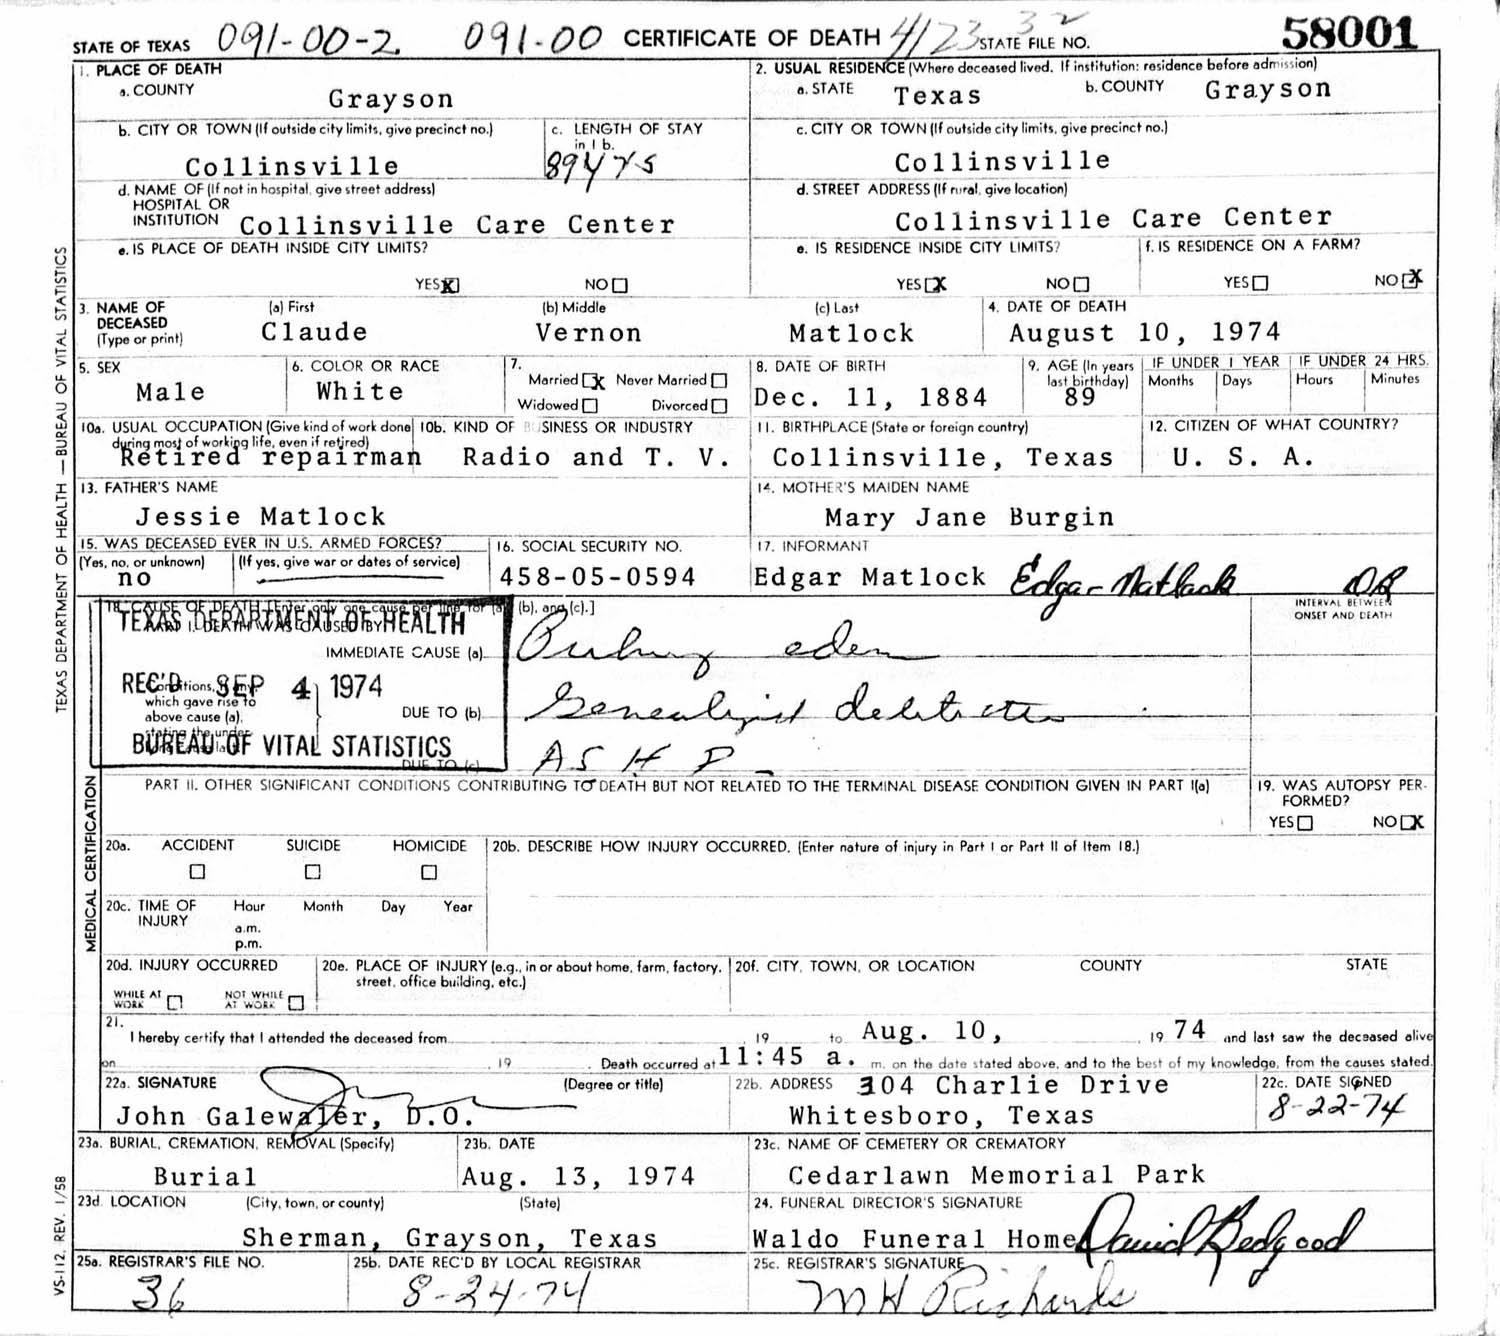 STATE OF TEXAS 091-00-2 091-00 CERTIFICATE OF DEATH 4123 32 STATE FILE NO. 58001
1. PLACE OF DEATH
a. COUNTY
Grayson
2. USUAL RESIDENCE (Where deceased lived. If institution: residence before admission)
a. STATE Texas b. COUNTY Grayson
b. CITY OR TOWN (If outside city limits, give precinct no.)
Collinsville
c. LENGTH OF STAY
in 1 b.
89 yrs
c. CITY OR TOWN (If outside city limits, give precinct no.)
Collinsville
d. NAME OF (If not in hospital, give street address)
HOSPITAL OR
INSTITUTION Collinsville Care Center
d. STREET ADDRESS (If rural, give location)
Collinsville Care Center
e. IS PLACE OF DEATH INSIDE CITY LIMITS?
YES X NO
e. IS RESIDENCE INSIDE CITY LIMITS?
YES X NO
f. IS RESIDENCE ON A FARM?
YES NO X
3. NAME OF
DECEASED
(Type or print)
(a) First
Claude
(b) Middle
Vernon
(c) Last
Matlock
4. DATE OF DEATH
August 10, 1974
5. SEX
Male
6. COLOR OR RACE
White
7.
Married X Never Married
Widowed Divorced
8. DATE OF BIRTH
Dec. 11, 1884
9. AGE (In years
last birthday)
89
IF UNDER 1 YEAR
Months Days
IF UNDER 24 HRS.
Hours Minutes
10a. USUAL OCCUPATION (Give kind of work done
during most of working life, even if retired)
Retired repairman
10b. KIND OF BUSINESS OR INDUSTRY
Radio and T. V.
11. BIRTHPLACE (State or foreign country)
Collinsville, Texas
12. CITIZEN OF WHAT COUNTRY?
U. S. A.
13. FATHER'S NAME
Jessie Matlock
14. MOTHER'S MAIDEN NAME
Mary Jane Burgin
15. WAS DECEASED EVER IN U.S. ARMED FORCES?
(Yes, no, or unknown) (If yes, give war or dates of service)
no
16. SOCIAL SECURITY NO.
458-05-0594
17. INFORMANT
Edgar Matlock Edgar Matlock
18. CAUSE OF DEATH [Enter only one cause per line for (a), (b), and (c).]
PART I. DEATH WAS CAUSED BY:
TEXAS DEPARTMENT OF HEALTH
REC'D SEP 4 1974
BUREAU OF VITAL STATISTICS
INTERVAL BETWEEN
ONSET AND DEATH
IMMEDIATE CAUSE (a)
Conditions, if any,
which gave rise to
above cause (a),
stating the under-
DUE TO (b) Generalized
DUE TO (c) A S H D
PART II. OTHER SIGNIFICANT CONDITIONS CONTRIBUTING TO DEATH BUT NOT RELATED TO THE TERMINAL DISEASE CONDITION GIVEN IN PART I(a)
19. WAS AUTOPSY PER-
FORMED?
YES NO X
20a. ACCIDENT SUICIDE HOMICIDE
20b. DESCRIBE HOW INJURY OCCURRED. (Enter nature of injury in Part I or Part II of Item 18.)
20c. TIME OF
INJURY
Hour Month Day Year
a.m.
p.m.
20d. INJURY OCCURRED
WHILE AT
WORK
NOT WHILE
AT WORK
20e. PLACE OF INJURY (e.g., in or about home, farm, factory,
street, office building, etc.)
20f. CITY, TOWN, OR LOCATION COUNTY STATE
21.
I hereby certify that I attended the deceased from , 19 to Aug. 10, , 19 74 and last saw the deceased alive
on , 19 . Death occurred at 11:45 a. m. on the date stated above, and to the best of my knowledge, from the causes stated.
22a. SIGNATURE (Degree or title)
John Galewaler, D.O.
22b. ADDRESS 304 Charlie Drive
Whitesboro, Texas
22c. DATE SIGNED
8-22-74
23a. BURIAL, CREMATION, REMOVAL (Specify)
Burial
23b. DATE
Aug. 13, 1974
23c. NAME OF CEMETERY OR CREMATORY
Cedarlawn Memorial Park
23d. LOCATION (City, town, or county) (State)
Sherman, Grayson, Texas
24. FUNERAL DIRECTOR'S SIGNATURE
Waldo Funeral Home David Bedgood
25a. REGISTRAR'S FILE NO.
36
25b. DATE REC'D BY LOCAL REGISTRAR
8-24-74
25c. REGISTRAR'S SIGNATURE
M H Richards
TEXAS DEPARTMENT OF HEALTH — BUREAU OF VITAL STATISTICS
MEDICAL CERTIFICATION
VS-112, REV. 1/58